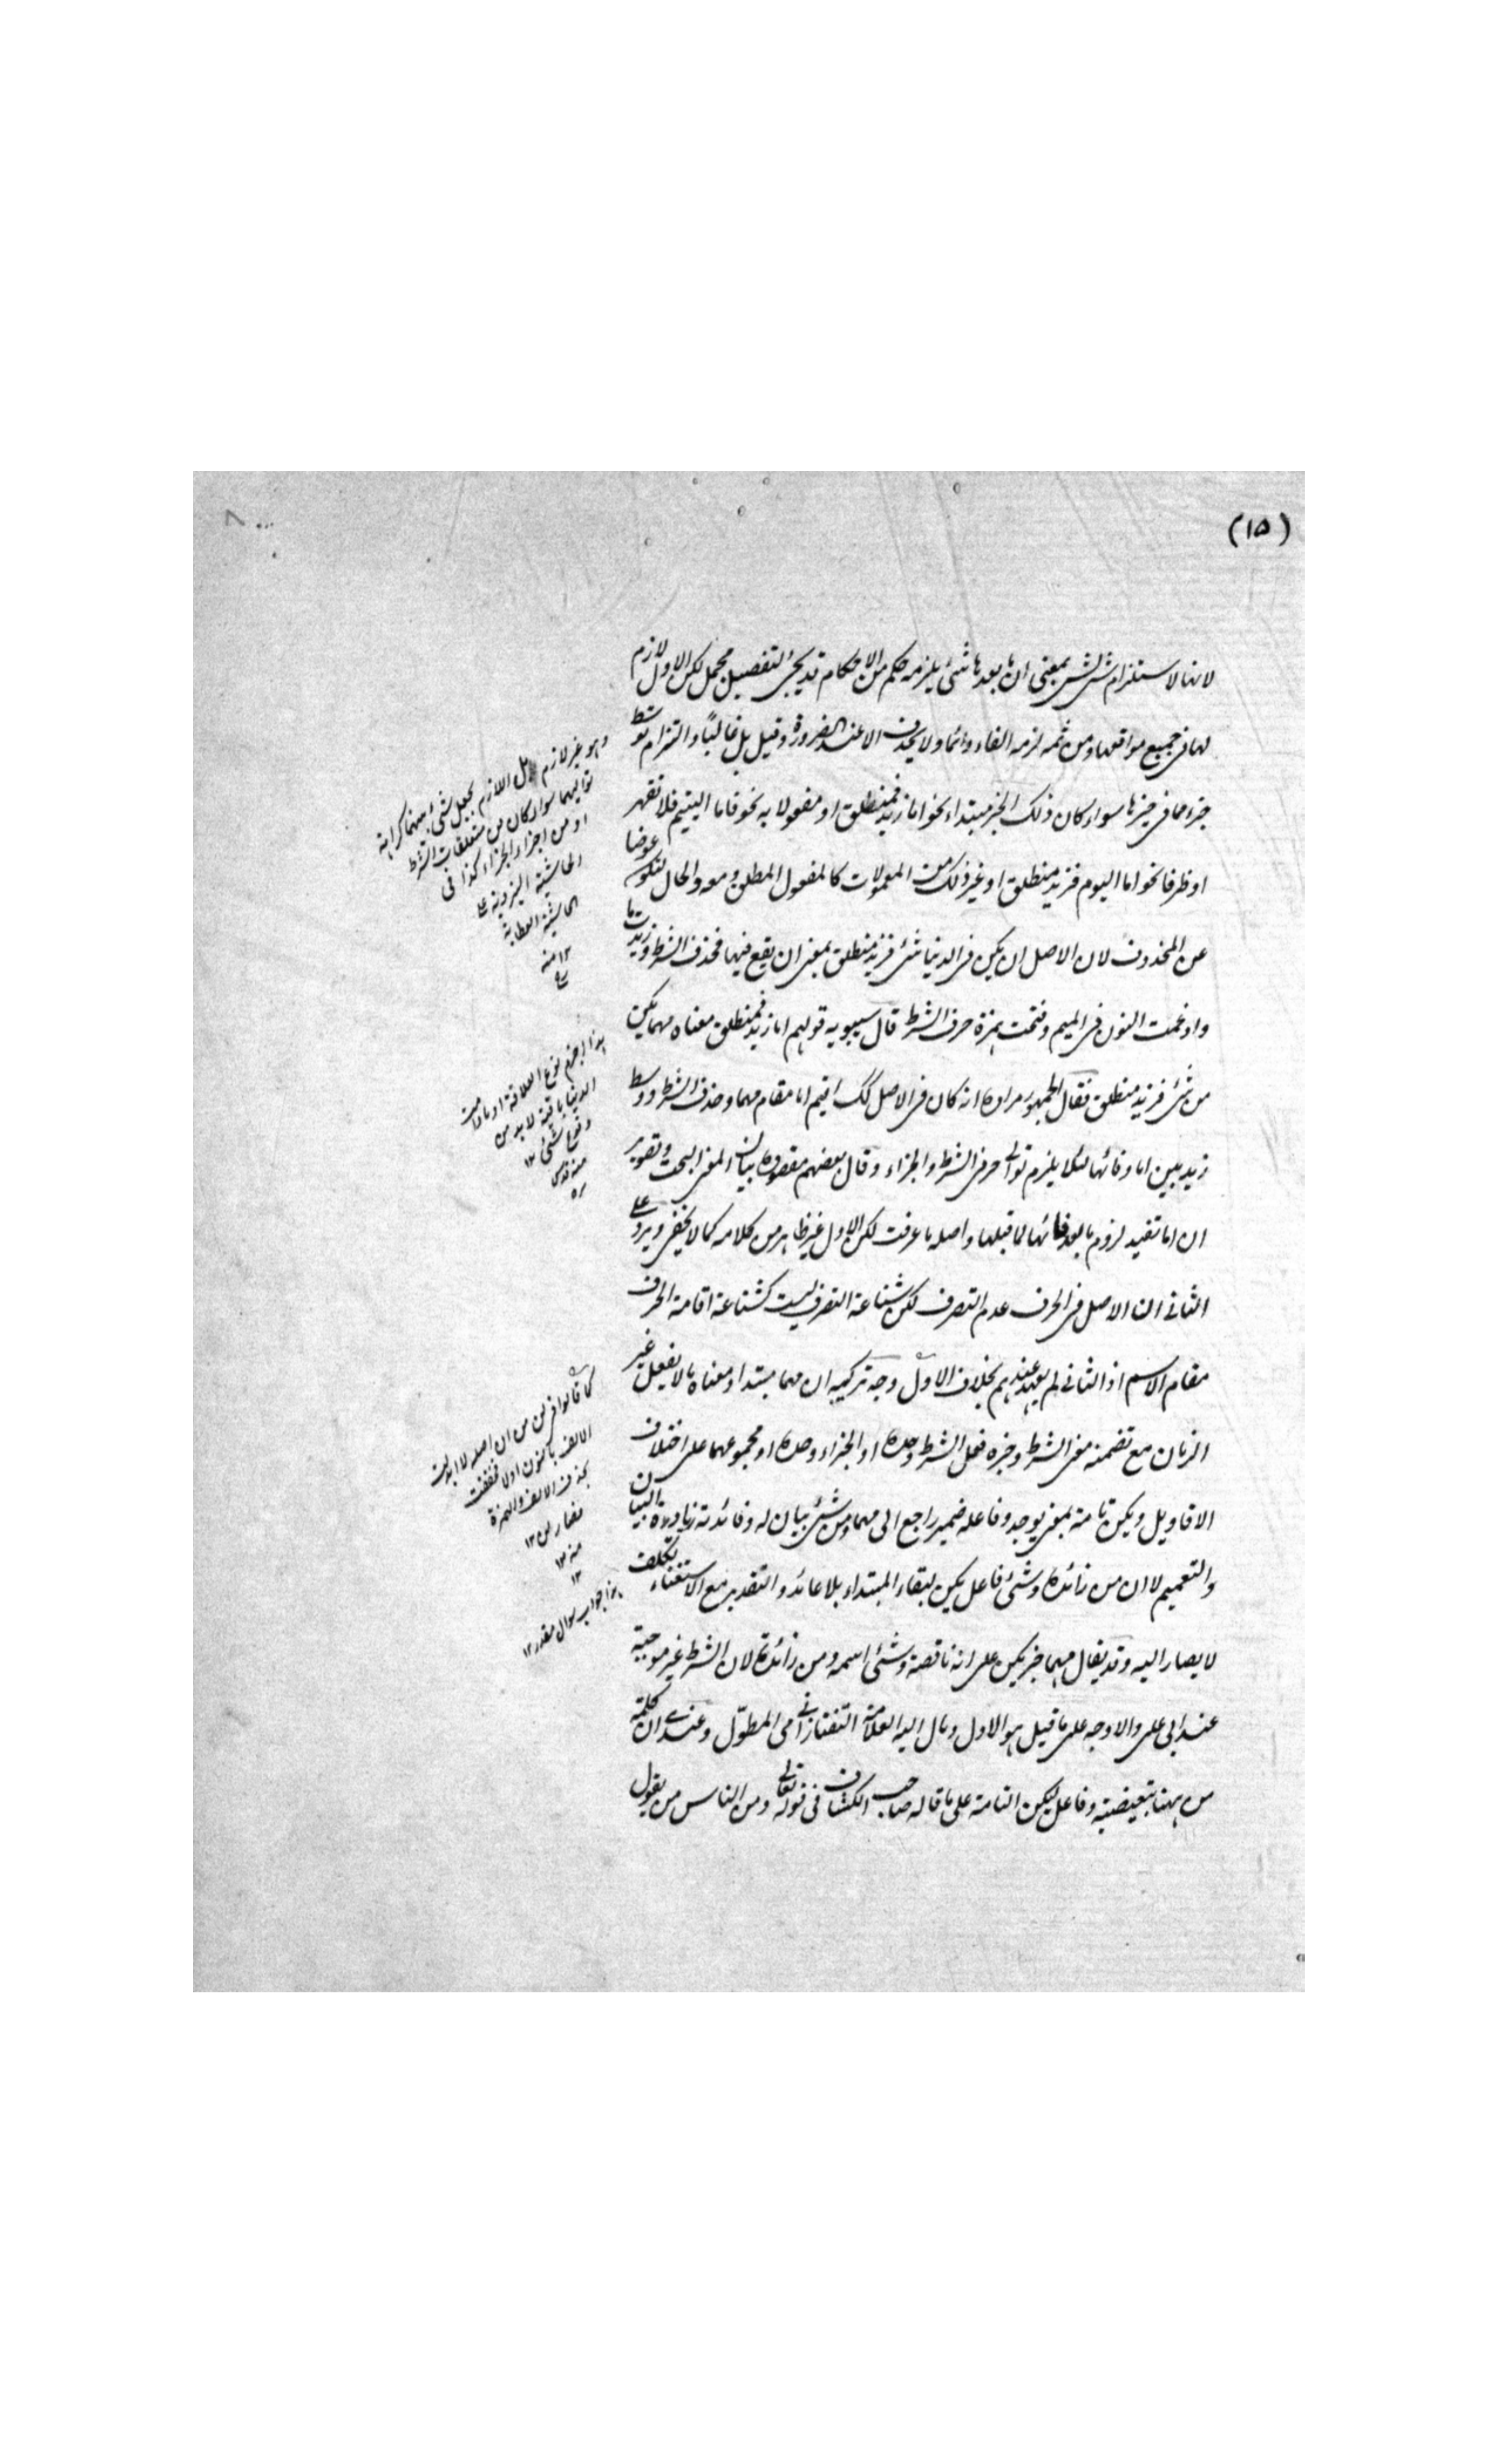 (١٥)
لانها لاستلزام شئ لشئ بمعنى ان ما بعدها شئ يلزمه حكم من الاحكام قد يجئ لتفصيل مجمل لكن الاول لازم
لها فى جميع مواقعها ومن ثمه لزمه الفاء دائما ولا يحذف الا عند الضرورة وقيل بل غالبًا والتزام توسط
جزء مما فى حيزها سواء كان ذلك الجزء مبتداء نحو اما زيد فمنطلق او مفعولا به نحو فاما اليتيم فلا تقهر
او ظرفا نحو اما اليوم فزيد منطلق او غير ذلك من المعمولات كالمفعول المطلق ومعه والحال لتكون عوضا
عن المحذوف لان الاصل ان يكن فى الدنيا شئ فزيد منطلق بمعنى ان يقع فيها فحذف الشرط وزيدت ما
وادغمت النون فى الميم وفتحت همزة حرف الشرط قال سيبويه قولهم اما زيد فمنطلق معناه مهما يكن
من شئ فزيد منطلق فقال الجمهور مراده انه كان فى الاصل كك اقيم اما مقام مهما وحذف الشرط ووسط
زيد بين اما وفائها لئلا يلزم توالى حرفى الشرط والجزاء وقال بعضهم مقصوده بيان المعنى البحت وتصوير
ان اما تفيد لزوم ما بعد فائها لما قبلها واصله ما عرفت لكن الاول غير ظاهر من كلامه كما لا يخفى ويرد على
الثانى ان الاصل فى الحرف عدم التصرف لكن شناعة التصرف ليست كشناعة اقامة الحرف
مقام الاسم اذ الثانى لم يعهد عندهم بخلاف الاول وجه تركيبه ان مهما مبتداء ومعناه ما لا يعقل غير
الزمان مع تضمنه معنى الشرط وخبره فعل الشرط وحده او الجزاء وحده او مجموعهما على اختلاف
الاقاويل ويكن تامة بمعنى يوجد وفاعله ضمير راجع الى مهما ومن شئ بيان له وفائدته زيادة البيان
والتعميم لا ان من زائدة وشئ فاعل يكن لبقاء المبتداء بلا عائد والتقدير مع الاستغناء تكلف
لا يصار اليه وقد يقال مهما خبر يكن على انه ناقصة وشئ اسمه ومن زائدة لان الشرط غير موجبة
عند ابى على والاوجه على ما قيل هو الاول ومال اليه العلامة التفتازانى فى المطوّل وعندى ان كلمة
من ههنا تبعيضية وفاعل ليكن التامة على ما قاله صاحب الكشاف فى قوله تعالى ومن الناس من يقول
وهو غير لازم بل اللازم تجعل شئ بينهما كراهة
تواليهما سواء كان من متعلقات الشرط
او من اجزاء الجزاء كذا فى
الحاشية اليزدية على
الحاشية الخطابية
١٢ منه
هذا الجزم نوع العلاقة او ما دامت
الدنيا باقية لا بد من
وقوع شئ ١٢
منه قدس
سره
كما قالوا فى لن من ان اصله لا ابدلت
الالف بالنون اولا فخففت
بحذف الالف والهمزة
فصار لن ١٢
منه ١٢
١٢
هذا جواب سوال مقدر ١٢